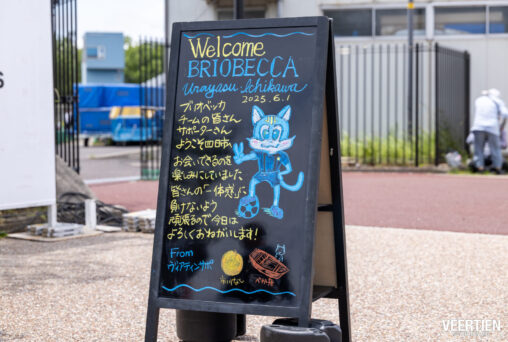 Welcome
BRIOBECCA
Urayasu・Ichikawa
2025.6.1
ブリオベッカ
チームの皆さん
サポーターさん
ようこそ四日市へ
お会いできるのを
楽しみにしていました
皆さんの「一体感」に
負けないよう
頑張るので今日は
よろしくおねがいします!
From
ヴィアティンサポ
市川なし
ベカ舟
VEERTIEN